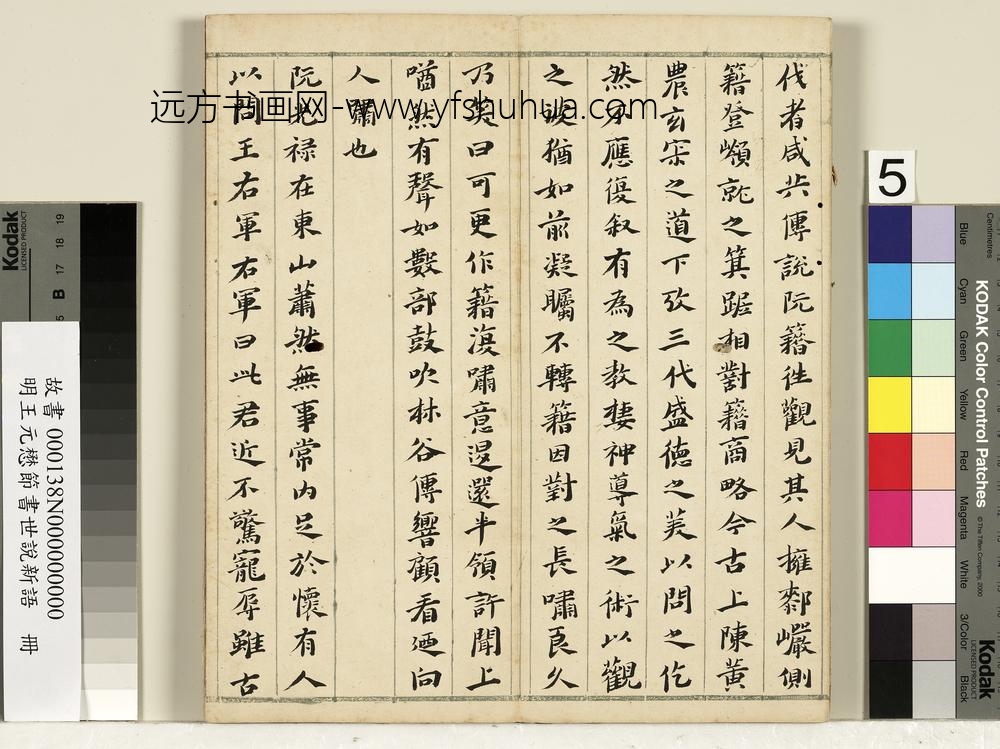 伐者咸共傳說阮籍徃觀見其人擁厀巖側
籍登嶺就之箕踞相對籍商略今古上陳黃
農玄㝛之道下攷三代盛德之美以問之仡
然不應復叙有為之教棲神導氣之術以觀
之彼猶如前凝矚不轉籍因對之長嘯良久
乃笑曰可更作籍復嘯意還半嶺許聞上
㗜然有聲如數部鼓吹林谷傳響顧看迺向
人嘯也
阮光禄在東山蕭然無事常内足於懷有人
以問王右軍右軍曰此君近不驚寵辱雖古
远方书画网-www.yfshuhua.com
故書 000138N000000000
明王元懋節書世說新語 冊
5
Kodak
LICENSED PRODUCT
B 17 18 19
KODAK Color Control Patches
© The Tiffen Company, 2000
Centimetres
Blue
Cyan
Green
Yellow
Red
Magenta
White
3/Color
Black
Kodak
LICENSED PRODUCT